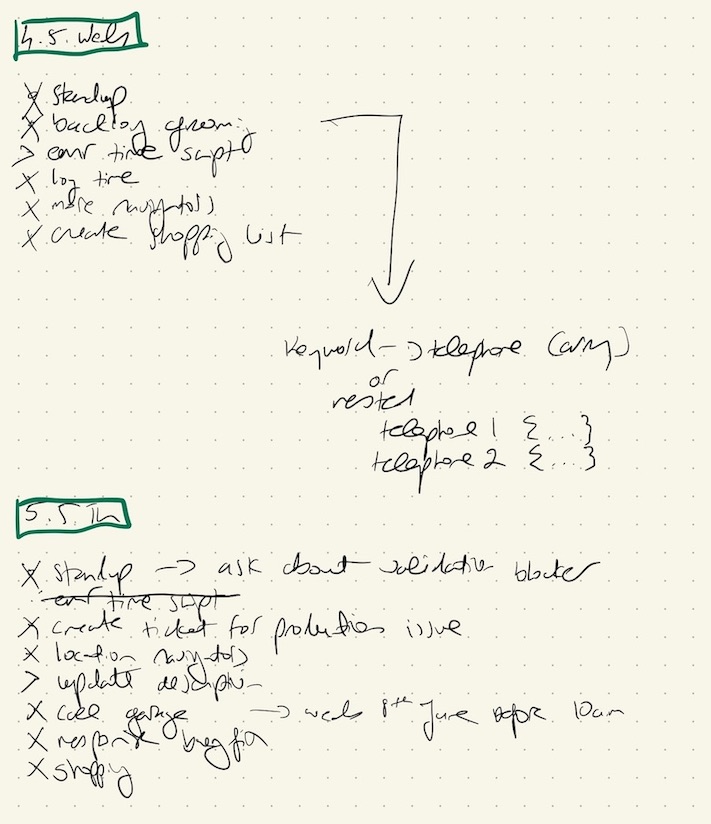 4.5. Weds
X standup
X backlog grooming
> emr time script
X log time
X more navigators
X create shopping list
keyword -> telephone (array)
or
nested
telephone 1 {...}
telephone 2 {...}
5.5. Th
X standup -> ask about validation blocker
emr time script
X create ticket for production issue
X location navigators
> update description
X call garage -> weds 8th June before 10am
X response bugfix
X shopping